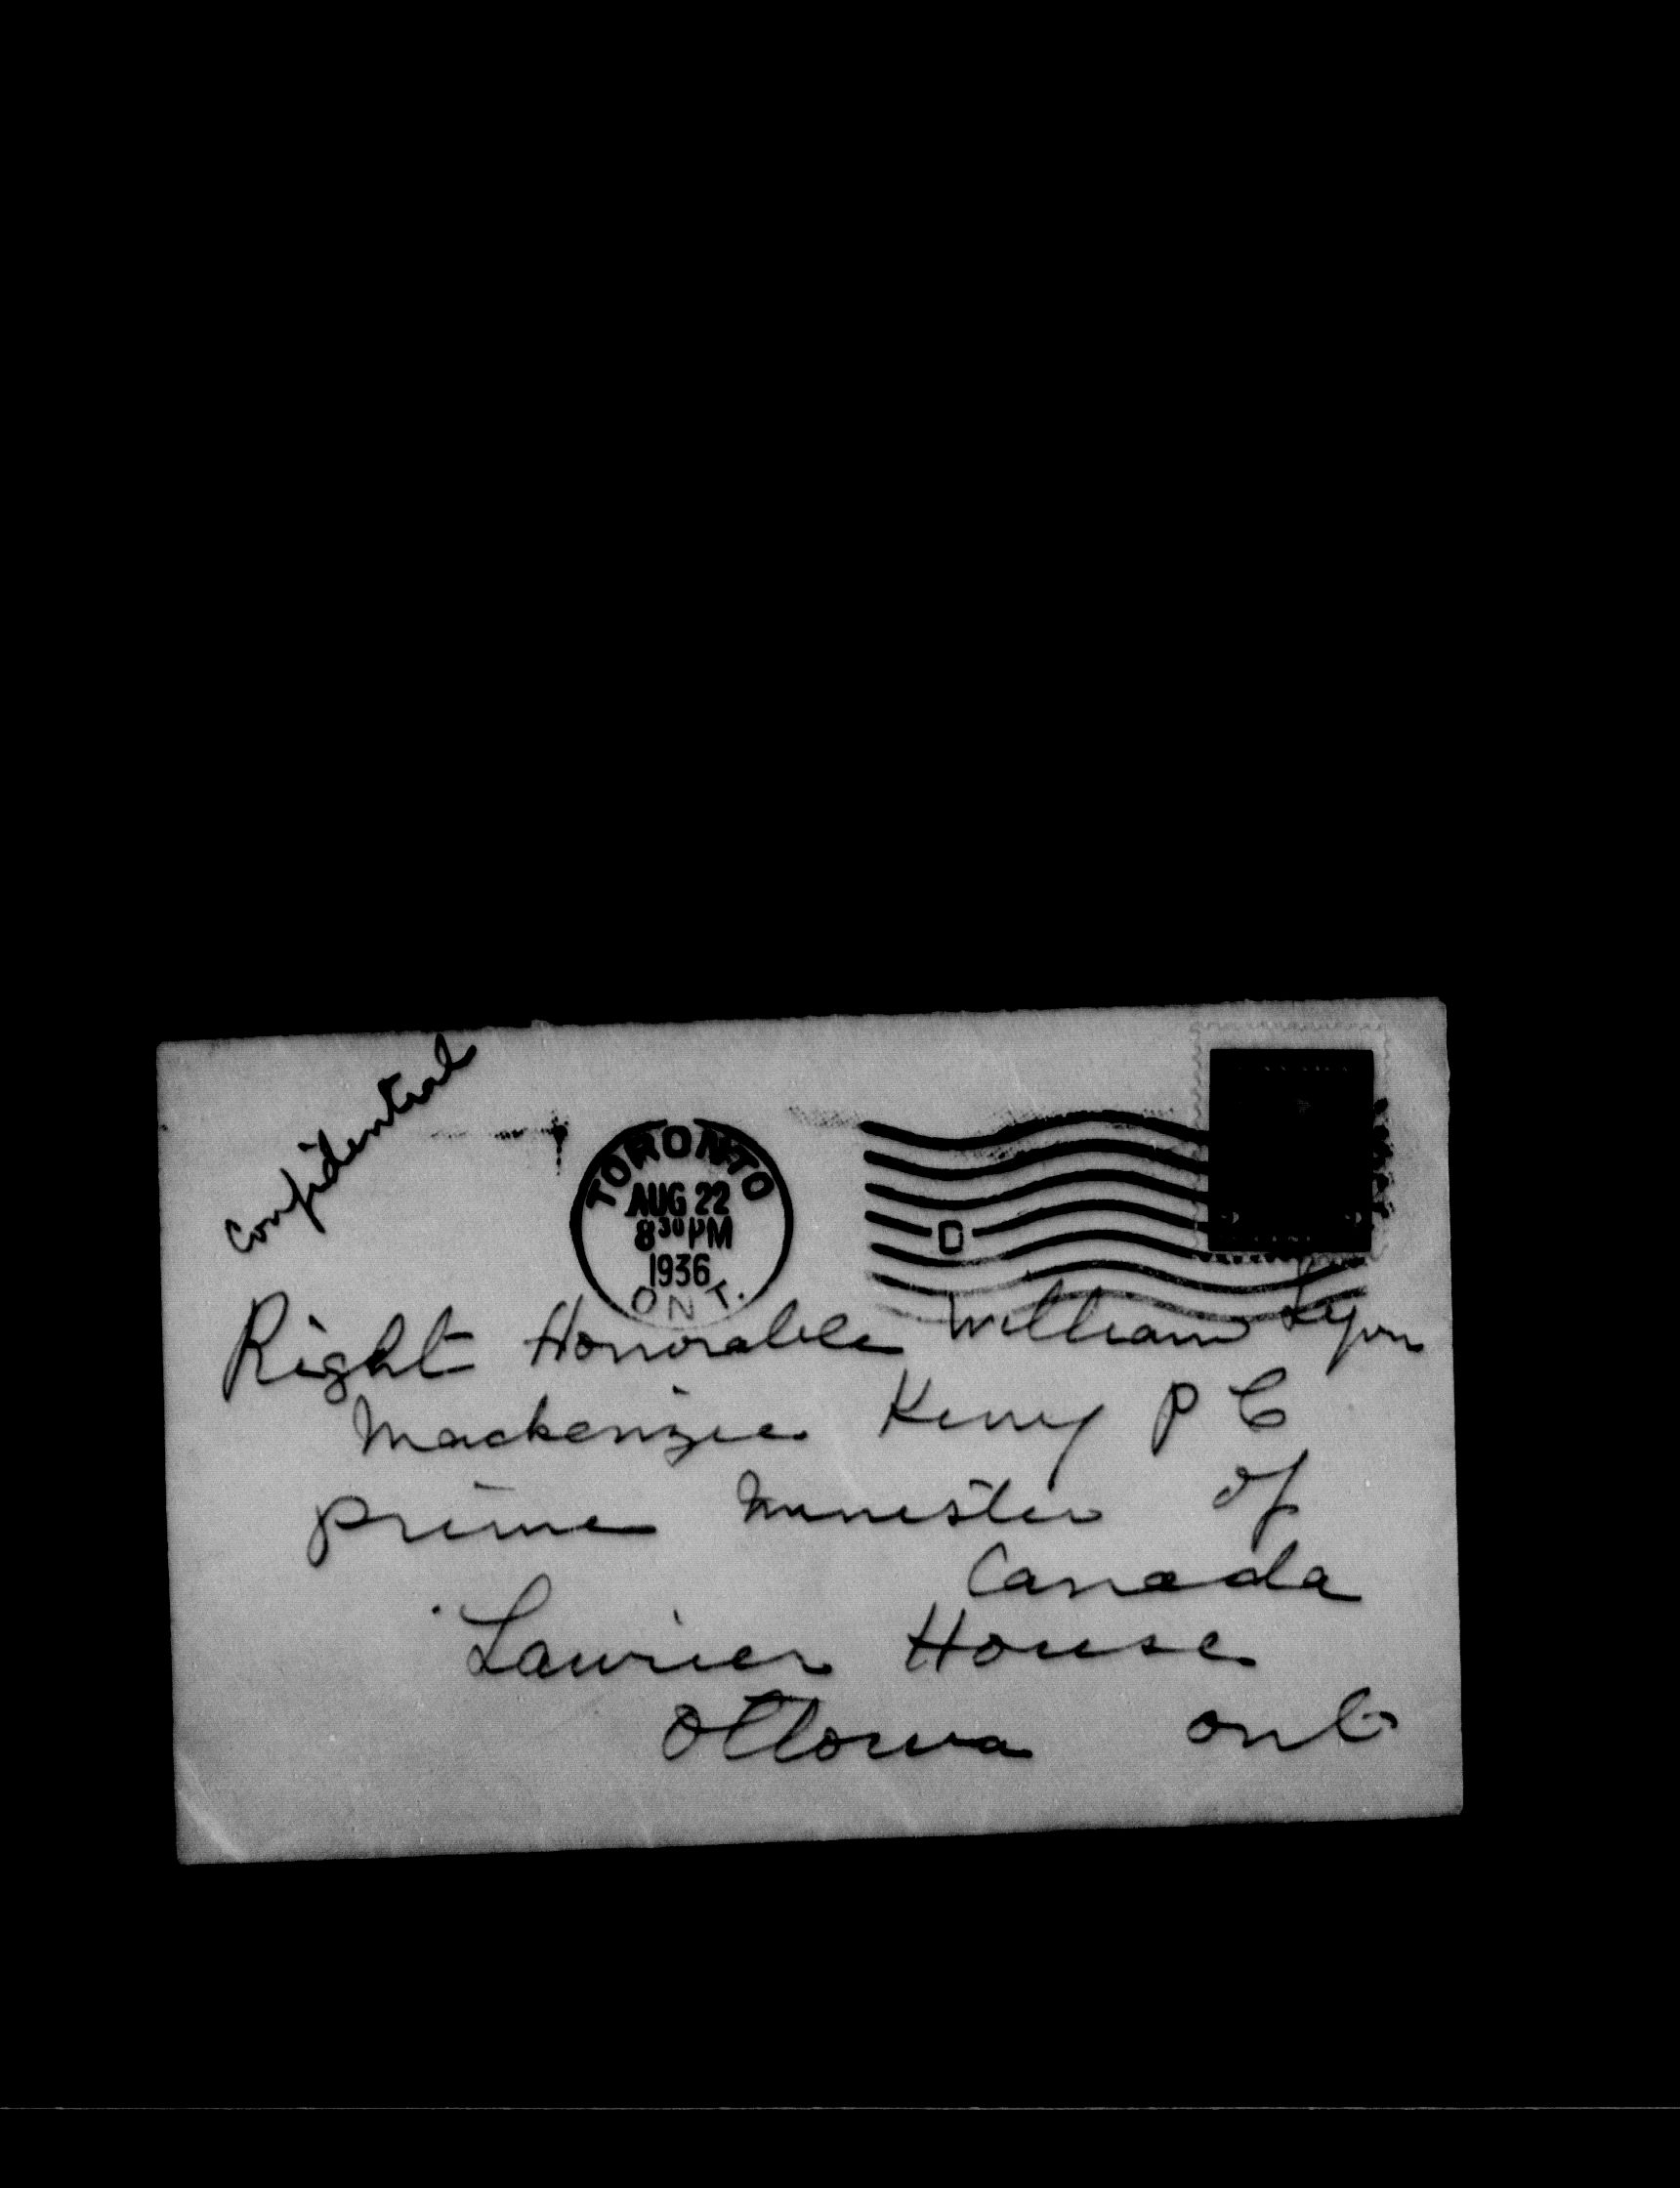 Confidential
TORONTO
AUG 22
8 30 PM
1936
ONT.
D
Right Honorable William Lyon
Mackenzie King P C
Prime Minister of
Canada
Laurier House
Ottowa Ont